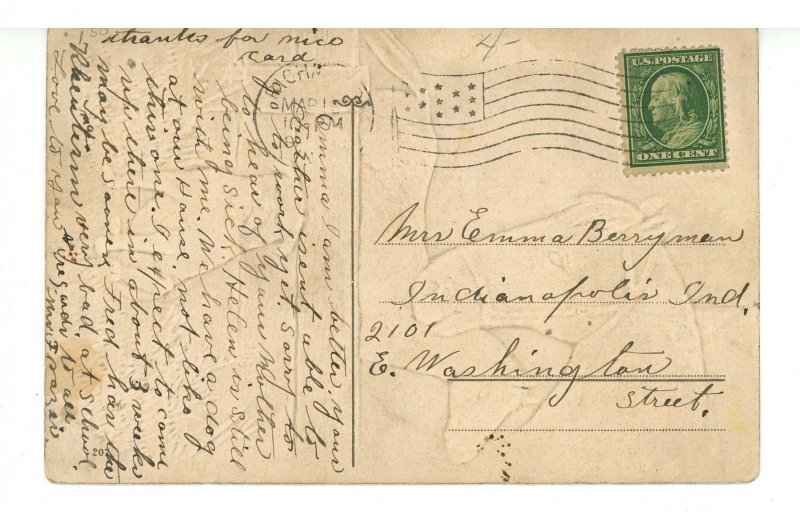 thanks for nice
card
Emma I am better. Your
Father isent able to
go to work yet. Sorry to
to hear of your Mother
being sick. Helen is still
with me. We have a dog
at our House, not like
this one. I expect to come
up there in about 3 weeks
may be sooner. Fred has the
Rheuterism very bad, at School.
Love to you & regards to all
U.S. POSTAGE
ONE CENT
MAR 1
Mrs Emma Berryman
Indianapolis Ind.
2101
E. Washington
Street.